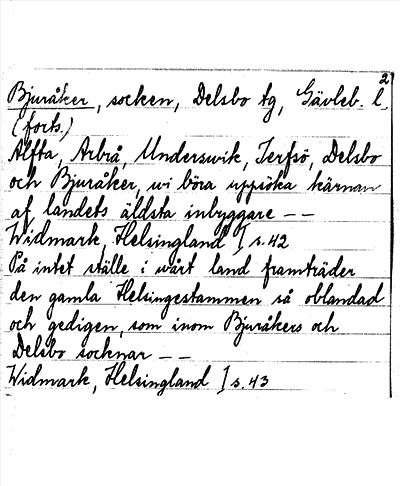 2
Bjuråker, socken, Delsbo tg, Gävleb. l.
(forts.)
Alfta, Arbrå, Underswik, Jerfsö, Delsbo
och Bjuråker, wi böra uppsöka kärnan
af landets äldsta inbyggare - -
Widmark, Helsingland I s. 42
På intet ställe i wårt land framträder
den gamla Helsingestammen så oblandad
och gedigen, som inom Bjuråkers och
Delsbo socknar - -
Widmark, Helsingland I s. 43